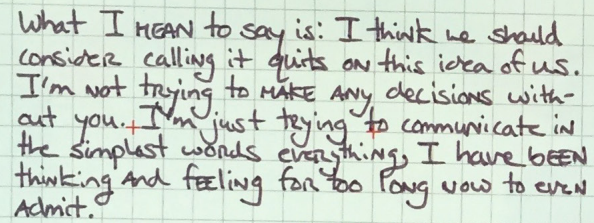 What I MEAN to say is: I think we should
consider calling it quits on this idea of us.
I'm not trying to MAKE ANY decisions with-
out you. I'm just trying to communicate in
the simplest words everything, I have bEEN
thinking And feeling for too long now to even
Admit.